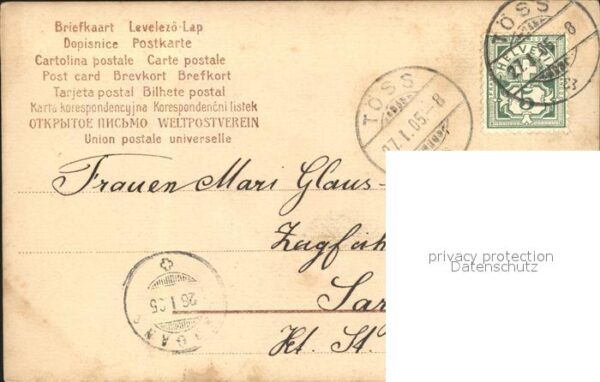 Briefkaart Levelező-Lap
Dopisnice Postkarte
Cartolina postale Carte postale
Post card Brevkort Brefkort
Tarjeta postal Bilhete postal
Karta korespondencyjna Korespondenční listek
ОТКРЫТОЕ ПИСЬМО WELTPOSTVEREIN
Union postale universelle
TÖSS
27.I.05.-8
TÖSS
27.I.05-8
HELVETIA
5
Frauen Mari Glaus-
Zugführ
Sar
Kt. St.
26.I.05
privacy protection
Datenschutz